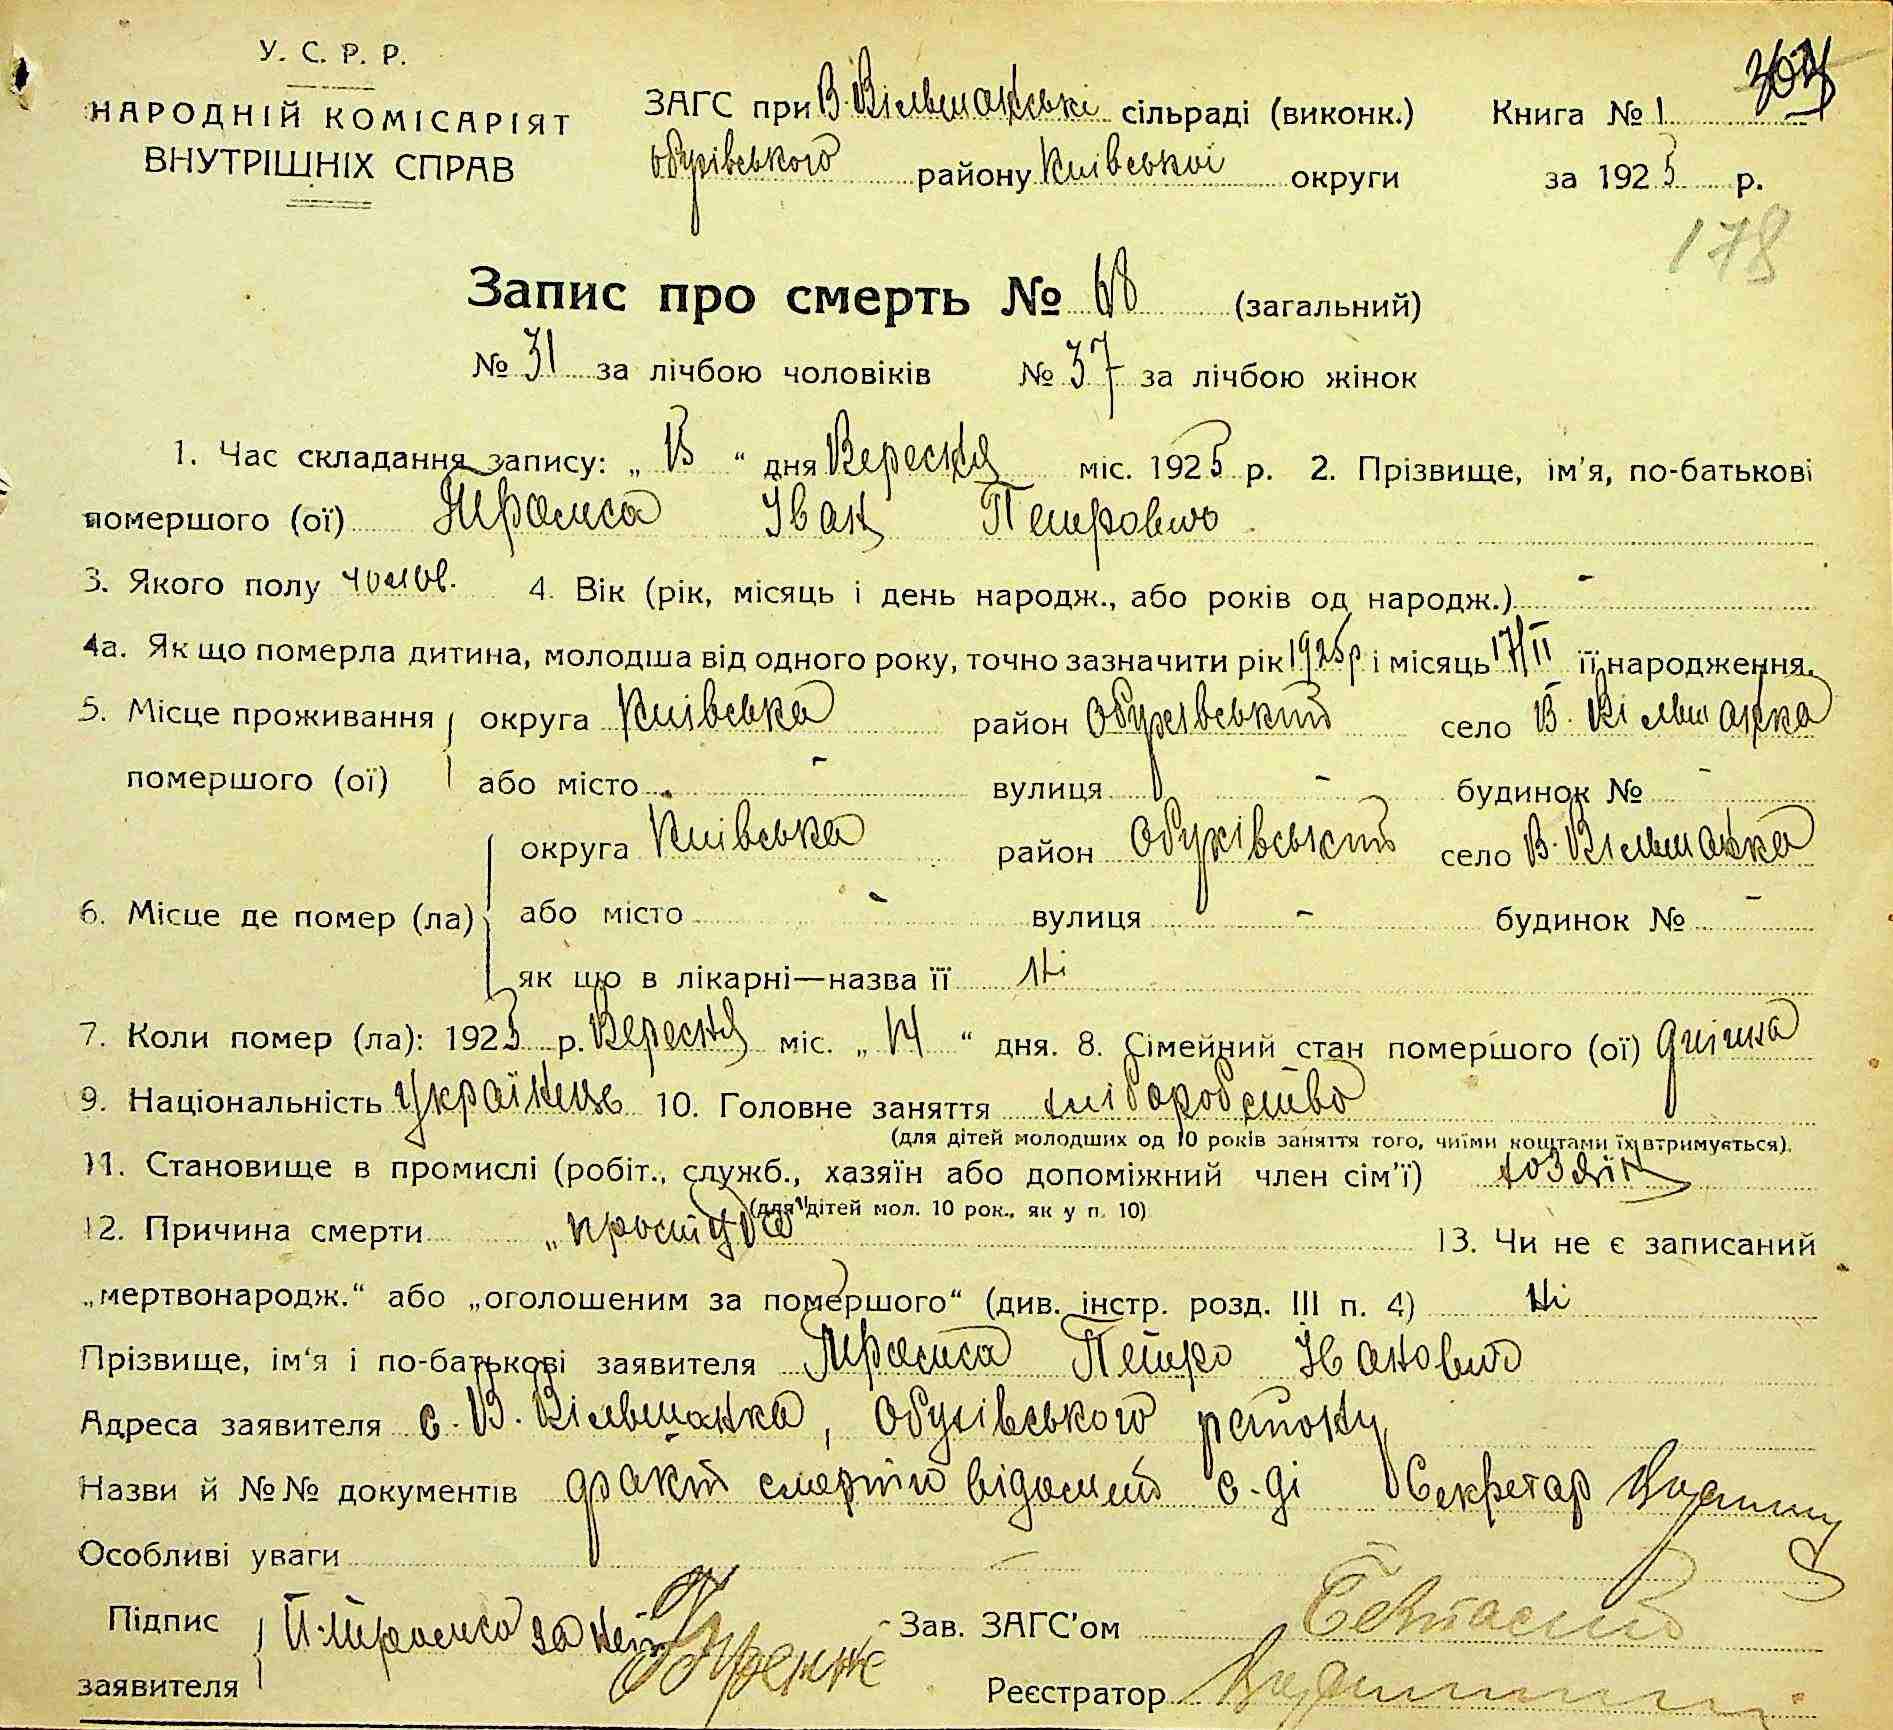 У. С. Р. Р.
НАРОДНІЙ КОМІСАРІЯТ
ВНУТРІШНІХ СПРАВ
ЗАГС при В. Вільшанські сільраді (виконк.)
Обухівського району Київської округи
Книга № 1
за 1925 р.
178
Запис про смерть № 68 (загальний)
№ 31 за лічбою чоловіків № 37 за лічбою жінок
1. Час складання запису: „ 15 “ дня Вересня міс. 1925 р. 2. Прізвище, ім'я, по-батькові
помершого (ої) Іван Петрович
3. Якого полу чолов. 4. Вік (рік, місяць і день народж., або років од народж.) -
4а. Як що померла дитина, молодша від одного року, точно зазначити рік 1925р. і місяць 17/II її народження.
5. Місце проживання округа Київська район Обухівський село В. Вільшанка
помершого (ої) або місто - вулиця - будинок № -
округа Київська район Обухівський село В. Вільшанка
6. Місце де помер (ла) або місто - вулиця - будинок № -
як що в лікарні—назва її Ні
7. Коли помер (ла): 1925 р. Вересня міс. „ 14 “ дня. 8. Сімейний стан помершого (ої) дитина
9. Національність Українець 10. Головне заняття хліборобство
(для дітей молодших од 10 років заняття того, чиїми коштами їх втримується).
11. Становище в промислі (робіт., служб., хазяїн або допоміжний член сім'ї) хозяїн
(для дітей мол. 10 рок., як у п. 10)
12. Причина смерти „простуда" 13. Чи не є записаний
„мертвонародж.“ або „оголошеним за помершого“ (див. інстр. розд. III п. 4) Ні
Прізвище, ім'я і по-батькові заявителя Петро Іванович
Адреса заявителя с. В. Вільшанка, Обухівського району
Назви й №№ документів факт смерти відомий с-ді Секретар
Особливі уваги —
Підпис
заявителя
Зав. ЗАГС'ом
Реєстратор